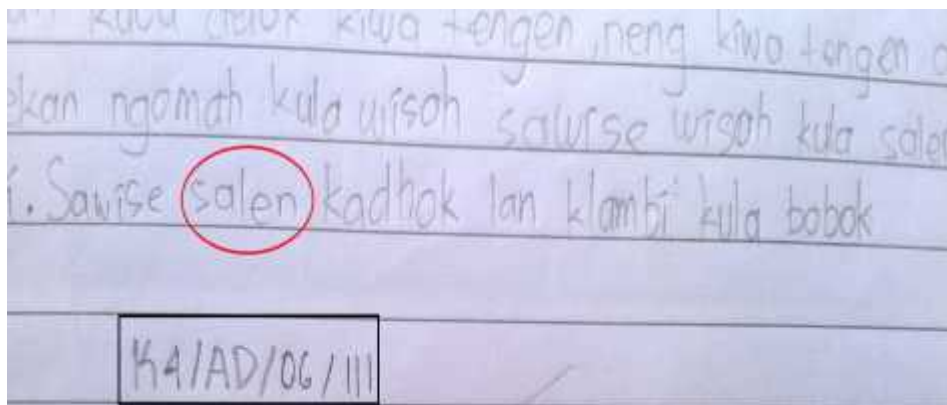 kula delok kiwa tengen, neng kiwa tengen
kan ngomah kula wisoh sawise wisoh kula salen
i. Sawise salen kadhok lan klambi kula bobok
K4/AD/06/III